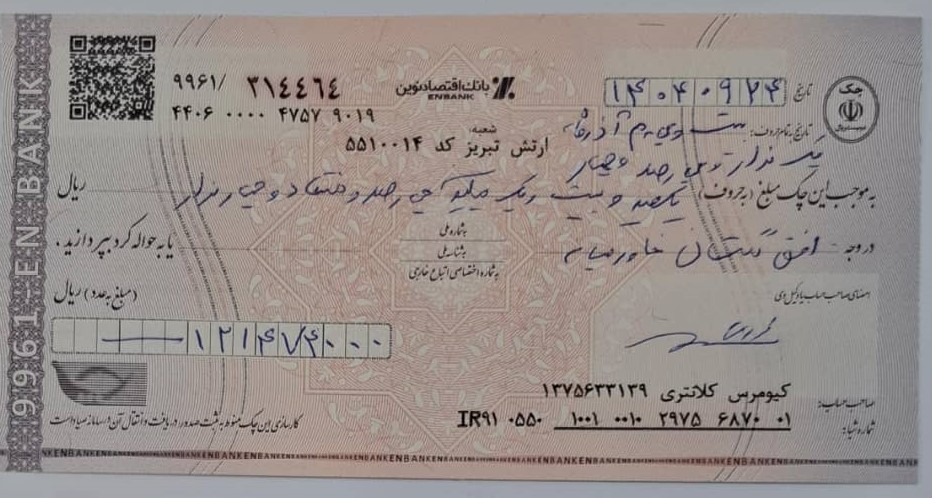 ۹۹۶۱/ ۳۱٤٤٦٤
۴۴۰۶ ۰۰۰۰ ۴۷۵۷ ۹۰۱۹
بانک اقتصاد نوین
ENBANK
تاریخ ۱۴۰۴۰۹۲۴
چک
تاریخ به تمام حروف: بیست و چهارم آذر ماه
یک هزار و چهارصد و چهار
شعبه:
ارتش تبریز کد ۵۵۱۰۰۱۴
به موجب این چک مبلغ (به حروف) یکصد و بیست و یک میلیون و چهارصد و هفتاد و چهار هزار ریال
در وجه افق گلستان خاورمیانه یا به حواله کرد بپردازید.
به شماره ملی
به شناسه ملی
به شماره اختصاصی اتباع خارجی
(مبلغ به عدد) ریال
۱۲۱۴۷۴۰۰۰
امضای صاحب حساب یا وکیل وی
صاحب حساب: کیومرس کلانتری ۱۳۷۵۶۳۳۱۳۹
شماره شبا: IR۹۱ ۰۵۵۰ ۱۰۰۱ ۰۰۱۰ ۲۹۷۵ ۶۸۷۰ ۰۱
کارسازی این چک منوط به ثبت صدور، دریافت و انتقال آن در سامانه صیاد است
9961 EN BANK
ENBANKENBANKENBANKENBANKENBANKENBANKENBANKENBANKENBANKENBANK